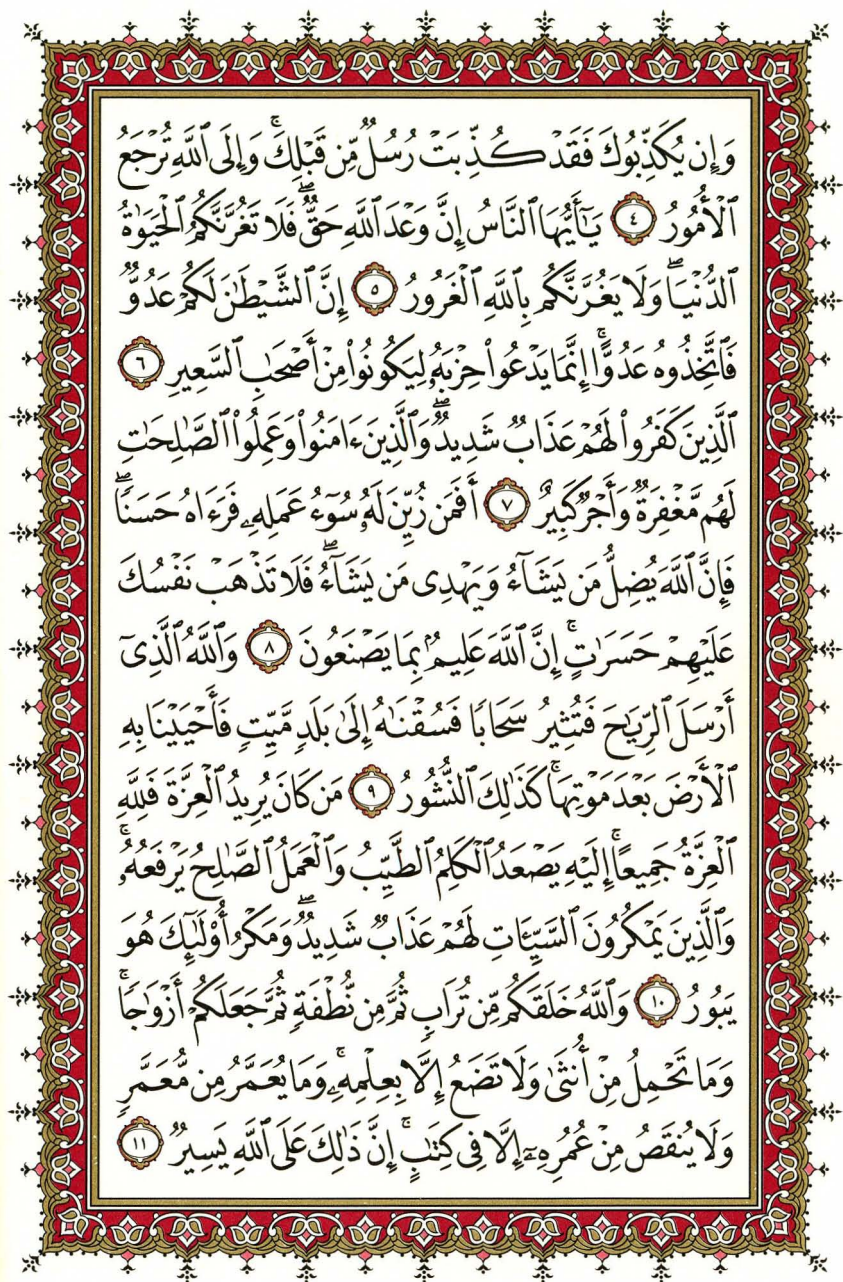 وَإِن يُكَذِّبُوكَ فَقَدۡ كُذِّبَتۡ رُسُلٞ مِّن قَبۡلِكَۚ وَإِلَى ٱللَّهِ تُرۡجَعُ
ٱلۡأُمُورُ ٤ يَٰٓأَيُّهَا ٱلنَّاسُ إِنَّ وَعۡدَ ٱللَّهِ حَقّٞۖ فَلَا تَغُرَّنَّكُمُ ٱلۡحَيَوٰةُ
ٱلدُّنۡيَا وَلَا يَغُرَّنَّكُم بِٱللَّهِ ٱلۡغَرُورُ ٥ إِنَّ ٱلشَّيۡطَٰنَ لَكُمۡ عَدُوّٞ
فَٱتَّخِذُوهُ عَدُوًّاۚ إِنَّمَا يَدۡعُواْ حِزۡبَهُۥ لِيَكُونُواْ مِنۡ أَصۡحَٰبِ ٱلسَّعِيرِ ٦
ٱلَّذِينَ كَفَرُواْ لَهُمۡ عَذَابٞ شَدِيدٞۖ وَٱلَّذِينَ ءَامَنُواْ وَعَمِلُواْ ٱلصَّٰلِحَٰتِ
لَهُم مَّغۡفِرَةٞ وَأَجۡرٞ كَبِيرٌ ٧ أَفَمَن زُيِّنَ لَهُۥ سُوٓءُ عَمَلِهِۦ فَرَءَاهُ حَسَنٗاۖ
فَإِنَّ ٱللَّهَ يُضِلُّ مَن يَشَآءُ وَيَهۡدِي مَن يَشَآءُۖ فَلَا تَذۡهَبۡ نَفۡسُكَ
عَلَيۡهِمۡ حَسَرَٰتٍۚ إِنَّ ٱللَّهَ عَلِيمُۢ بِمَا يَصۡنَعُونَ ٨ وَٱللَّهُ ٱلَّذِيٓ
أَرۡسَلَ ٱلرِّيَٰحَ فَتُثِيرُ سَحَابٗا فَسُقۡنَٰهُ إِلَىٰ بَلَدٖ مَّيِّتٖ فَأَحۡيَيۡنَا بِهِ
ٱلۡأَرۡضَ بَعۡدَ مَوۡتِهَاۚ كَذَٰلِكَ ٱلنُّشُورُ ٩ مَن كَانَ يُرِيدُ ٱلۡعِزَّةَ فَلِلَّهِ
ٱلۡعِزَّةُ جَمِيعًاۚ إِلَيۡهِ يَصۡعَدُ ٱلۡكَلِمُ ٱلطَّيِّبُ وَٱلۡعَمَلُ ٱلصَّٰلِحُ يَرۡفَعُهُۥۚ
وَٱلَّذِينَ يَمۡكُرُونَ ٱلسَّيِّـَٔاتِ لَهُمۡ عَذَابٞ شَدِيدٞۖ وَمَكۡرُ أُوْلَٰٓئِكَ هُوَ
يَبُورُ ١٠ وَٱللَّهُ خَلَقَكُم مِّن تُرَابٖ ثُمَّ مِن نُّطۡفَةٖ ثُمَّ جَعَلَكُمۡ أَزۡوَٰجٗاۚ
وَمَا تَحۡمِلُ مِنۡ أُنثَىٰ وَلَا تَضَعُ إِلَّا بِعِلۡمِهِۦۚ وَمَا يُعَمَّرُ مِن مُّعَمَّرٖ
وَلَا يُنقَصُ مِنۡ عُمُرِهِۦٓ إِلَّا فِي كِتَٰبٍۚ إِنَّ ذَٰلِكَ عَلَى ٱللَّهِ يَسِيرٞ ١١